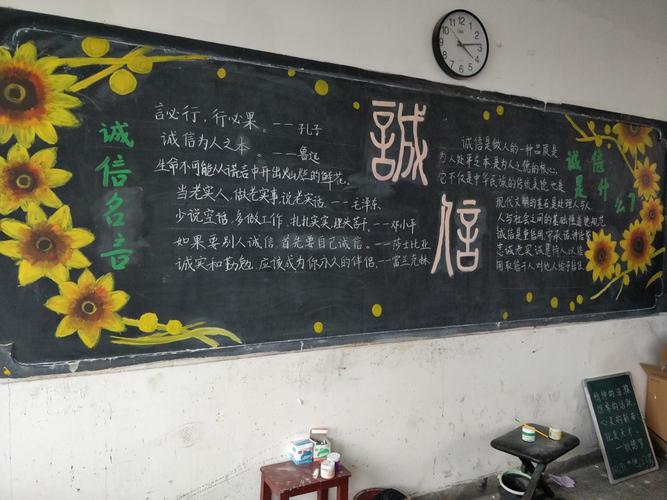 诚信名言
言必行，行必果。---孔子
诚信为人之本 ---鲁迅
生命不可能从谎言中开出灿烂的鲜花。
当老实人，做老实事，说老实话。---毛泽东
少说空话，多做工作，扎扎实实，埋头苦干。--邓小平
如果要别人诚信，首先要自己诚信。--莎士比亚
诚实和勤勉，应该成为你永久的伴侣。--富兰克林
誠信
诚信是什么?
诚信是做人的一种品质是
为人处事之本是为人之德的核心，
它不仅是中华民族的传统美德也是
现代文明的基石是处理人与人
人与社会之间的基础性道德规范
诚信是重信用，守承诺，讲信誉
忠诚老实诚是待人以信
用取信于人对他人给予信任。